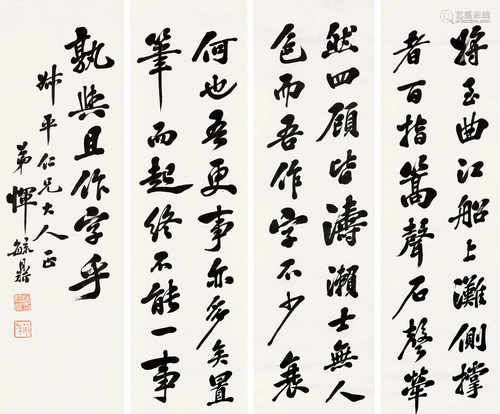 將至曲江船上灘側撐
者百指篙聲石聲犖
然四顧皆濤瀨士無人
色而吾作字不少衰
何也吾更事亦多矣置
筆而起終不能一事
孰與且作字乎
叔平仁兄大人正
弟惲毓鼎
易拍全球